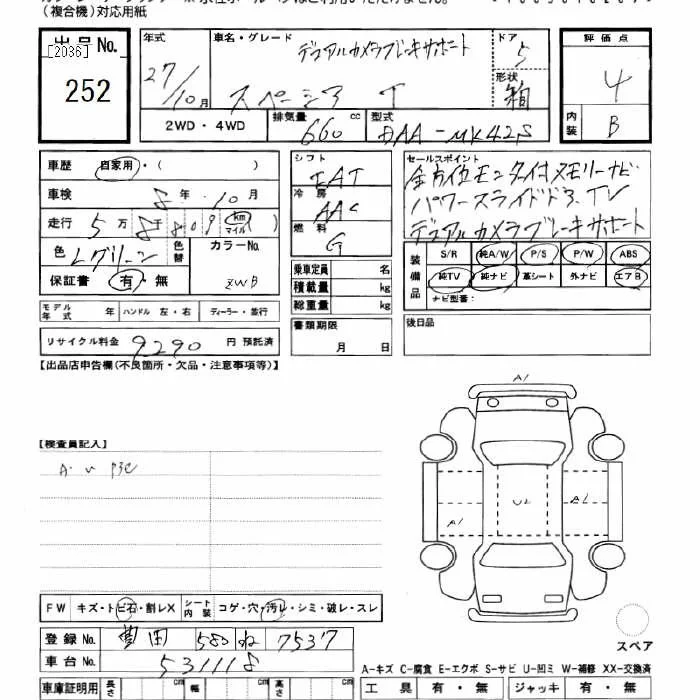 (複合機)対応用紙
出品No.
[2036]
252
年式
27/10月
車名・グレード
デュアルカメラブレーキサポート
スペーシア T
ドア
5
形状
箱
評価点
4
内装
B
2WD・4WD
排気量
660 cc
型式
DAA-MK42S
車歴 自家用・( )
車検 8年 10月
走行 5万8千809 (km マイル)
色 Lグリーン 色替
カラーNo.
ZWB
保証書 有・無
モデル年式 年 ハンドル 左・右 ディーラー・並行
リサイクル料金 9290 円 預託済
シフト
IAT
冷房
AAC
燃料
G
乗車定員 名
積載量 kg
総重量 kg
書類期限
月 日
セールスポイント
全方位モニタ付メモリーナビ
パワースライドドア、TV
デュアルカメラブレーキサポート
装備品
S/R 純A/W P/S P/W ABS
純TV 純ナビ 革シート 外ナビ エアB
ナビ型番:
後日品
【出品店申告欄(不良箇所・欠品・注意事項等)】
【検査員記入】
A1
U2
A1
A1
FW キズ・トビ石・割レX シート内装 コゲ・穴・汚レ・シミ・破レ・スレ
登録No. 豊田 580 ね 7537
車台No. 531118
車庫証明用 長さ cm 幅 cm 高さ cm
スペア
A-キズ C-腐食 E-エクボ S-サビ U-凹ミ W-補修 XX-交換済
工具 有・無 ジャッキ 有・無